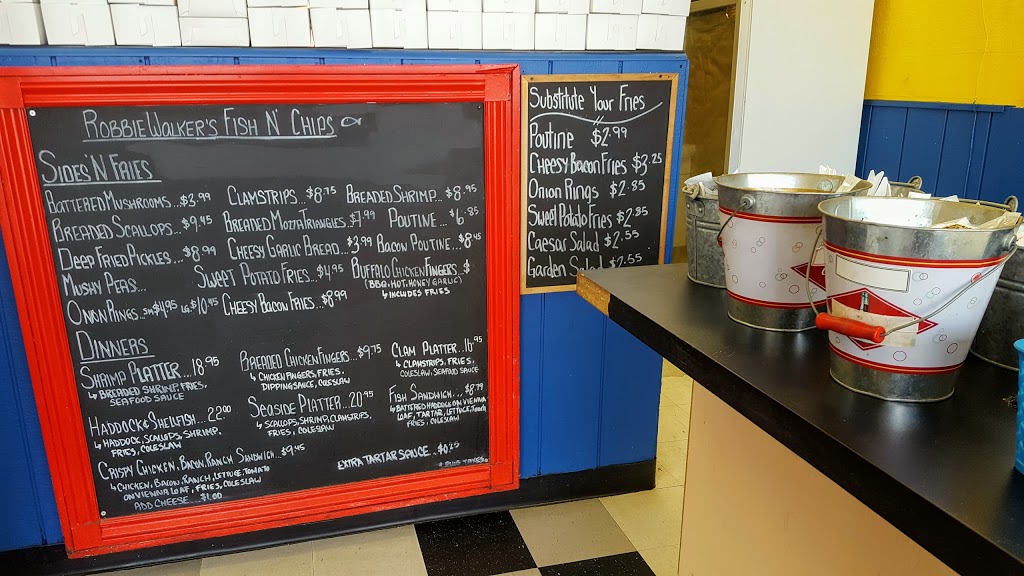 ROBBIE WALKER'S FISH N' CHIPS
SIDES 'N FRIES
BATTERED MUSHROOMS...$3.99
CLAMSTRIPS...$8.75
BREADED SHRIMP...$8.95
BREADED SCALLOPS...$9.45
BREADED MOZZA TRIANGLES...$7.99
POUTINE...$6.85
DEEP FRIED PICKLES...$8.99
CHEESY GARLIC BREAD...$3.99
BACON POUTINE...$8.45
MUSHY PEAS...
SWEET POTATO FRIES...$4.95
BUFFALO CHICKEN FINGERS...$
(BBQ, HOT, HONEY GARLIC)
↳ INCLUDES FRIES
ONION RINGS...SM $4.95 LG $10.95
CHEESY BACON FRIES...$8.99
DINNERS
SHRIMP PLATTER...18.95
↳ BREADED SHRIMP, FRIES,
SEAFOOD SAUCE
BREADED CHICKEN FINGERS...$9.75
↳ CHICKEN FINGERS, FRIES,
DIPPING SAUCE, COLESLAW
CLAM PLATTER...16.95
↳ CLAMSTRIPS, FRIES,
COLESLAW, SEAFOOD SAUCE
HADDOCK & SHELLFISH...22.00
↳ HADDOCK, SCALLOPS, SHRIMP,
FRIES, COLESLAW
SEASIDE PLATTER...20.95
↳ SCALLOPS, SHRIMP, CLAMSTRIPS,
FRIES, COLESLAW
FISH SANDWICH...$8.79
↳ BATTERED HADDOCK ON VIENNA
LOAF, TARTAR, LETTUCE,
FRIES, COLESLAW
CRISPY CHICKEN, BACON, RANCH SANDWICH...$9.45
↳ CHICKEN, BACON, RANCH, LETTUCE, TOMATO
ON VIENNA LOAF, FRIES, COLESLAW
ADD CHEESE...$1.00
EXTRA TARTAR SAUCE...$0.25
Substitute Your Fries
Poutine $2.99
Cheesy Bacon Fries $3.25
Onion Rings $2.85
Sweet Potato Fries $2.85
Caesar Salad $2.55
Garden Salad $2.55